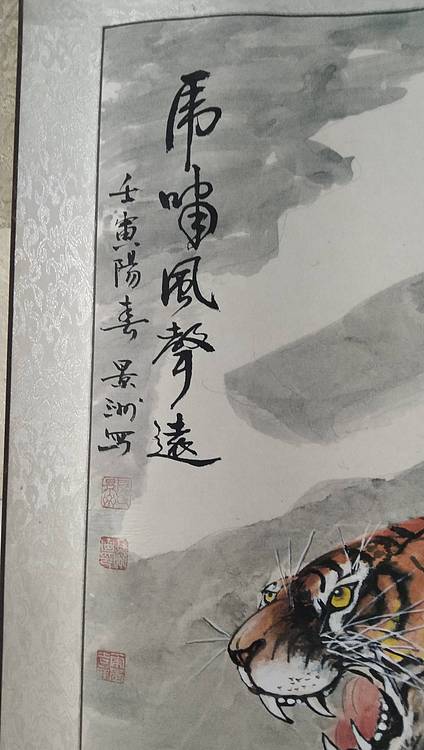 虎嘯風聲遠
壬寅陽春 景洲写